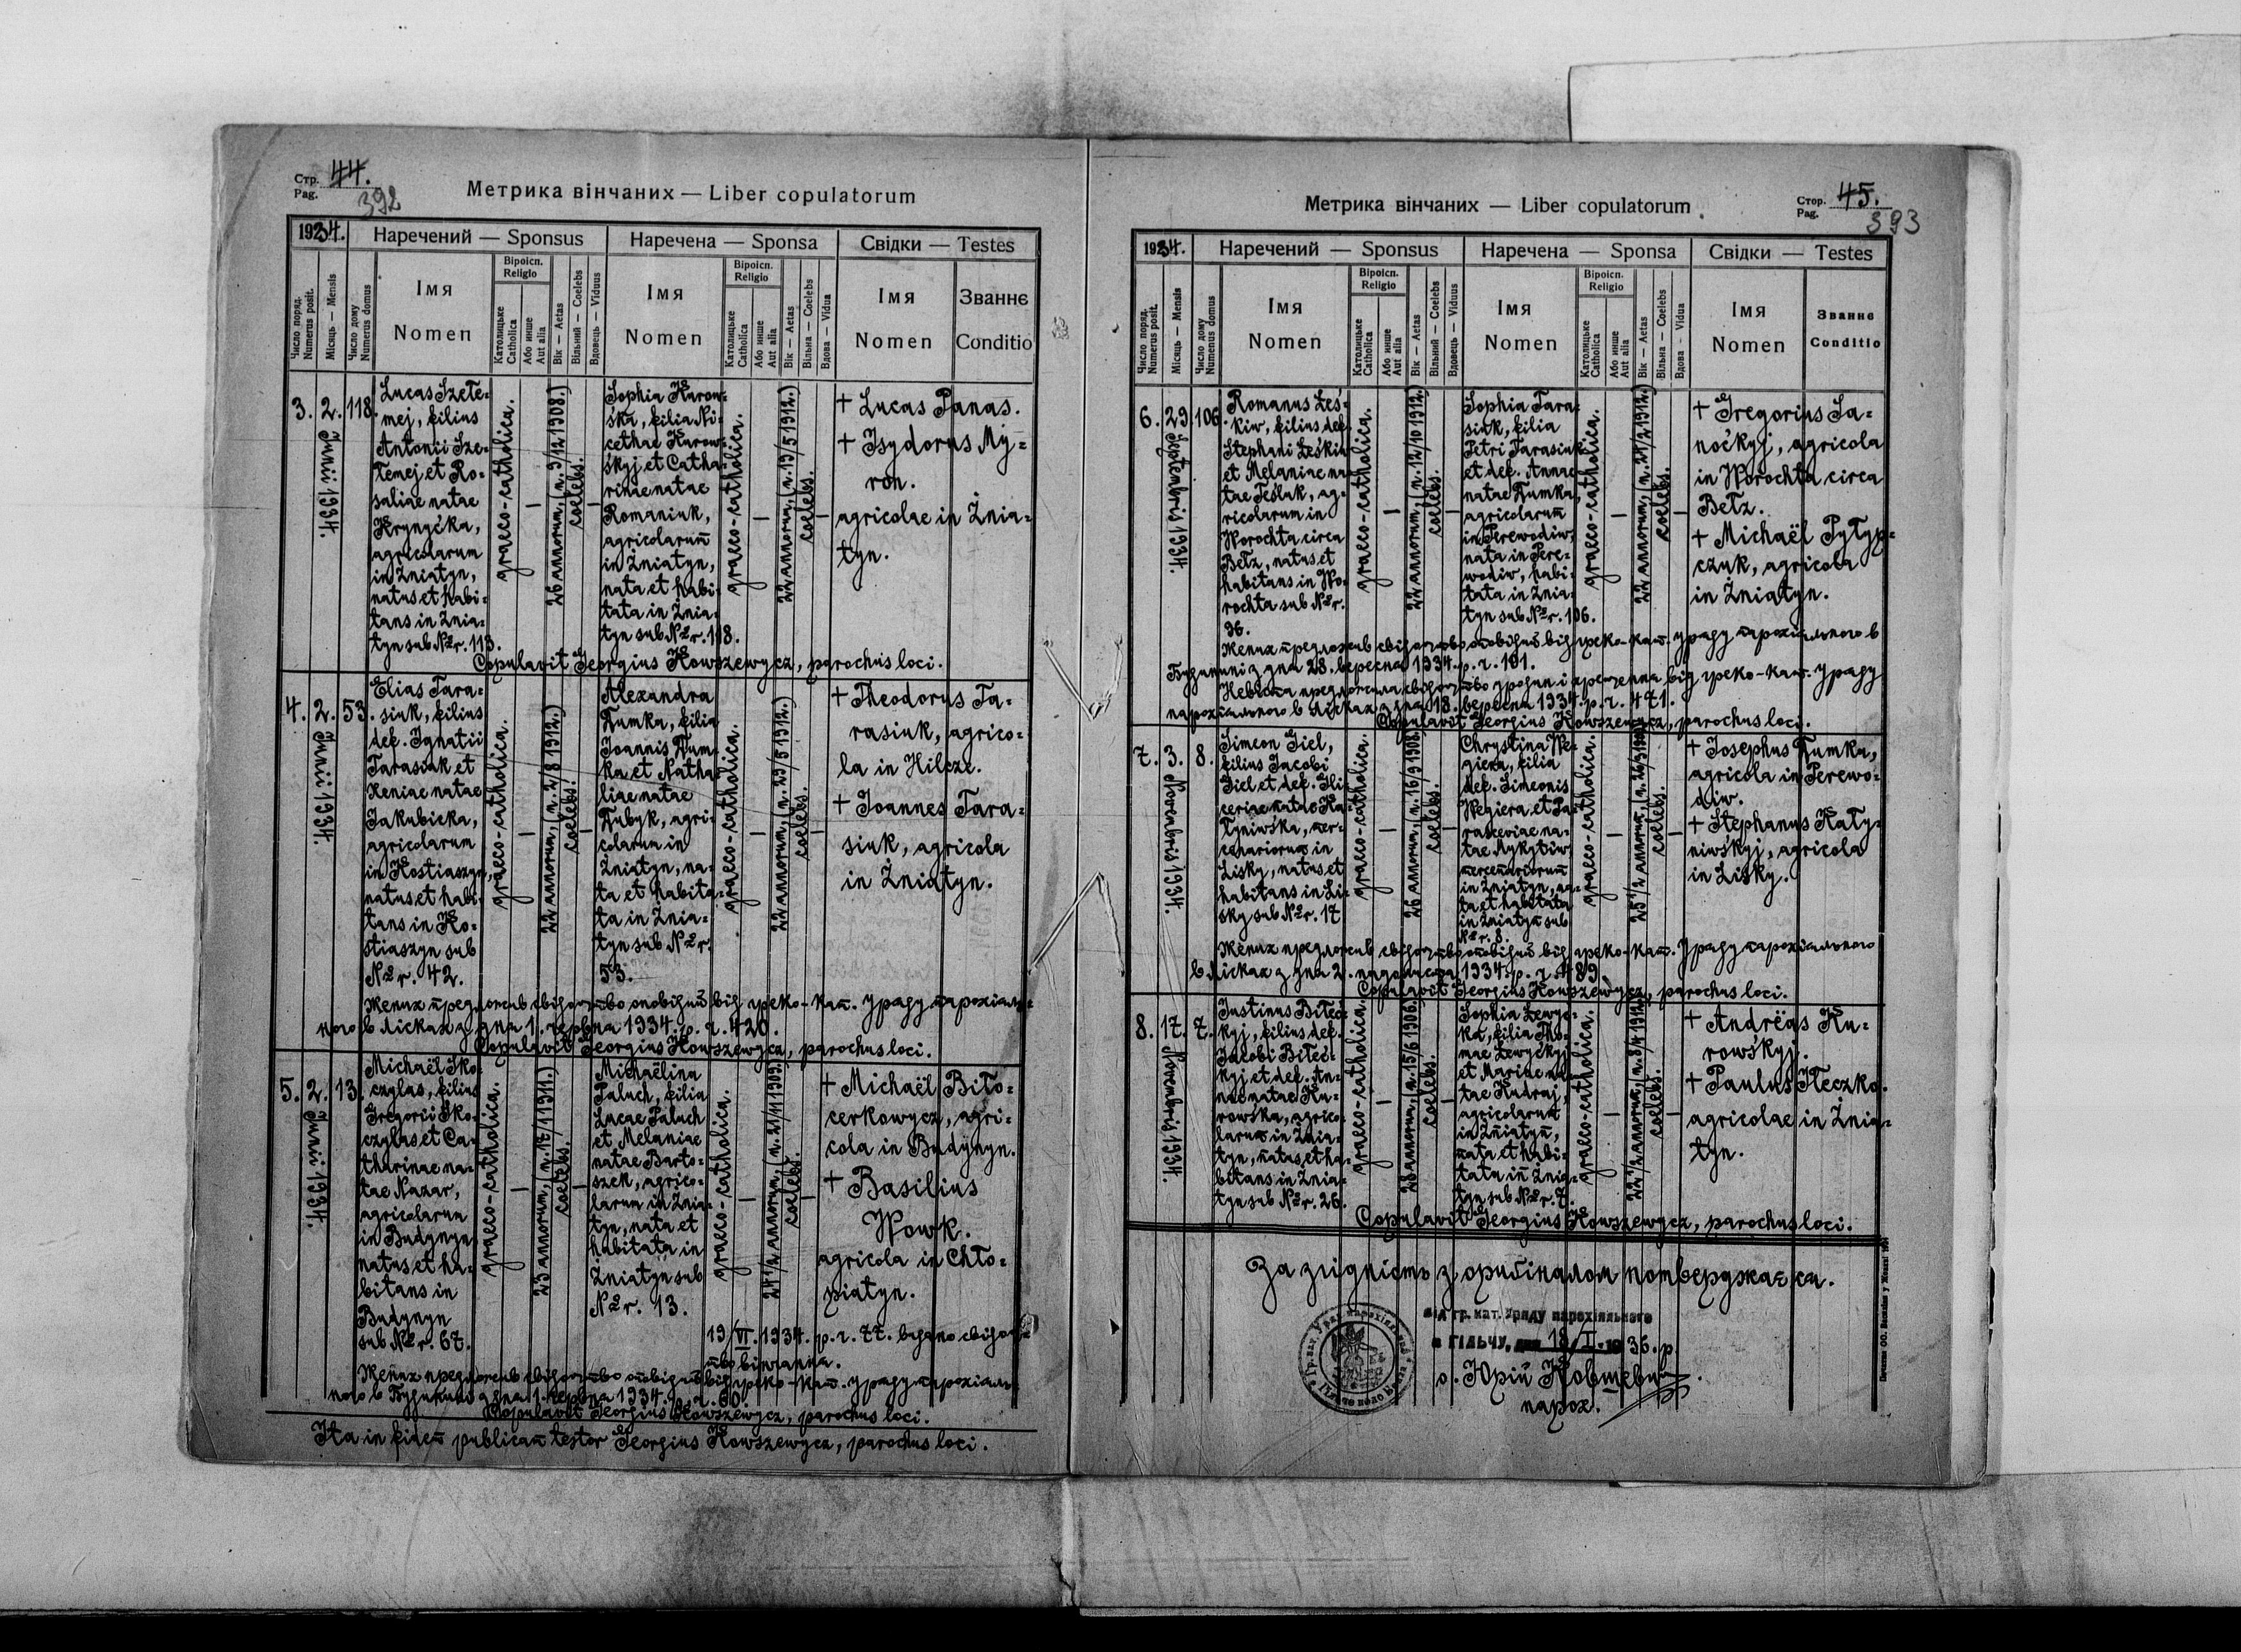 Стр. 44.
Pag. 392
Метрика вінчаних — Liber copulatorum
1934.
Наречений — Sponsus
Наречена — Sponsa
Свідки — Testes
Число поряд.
Numerus posit.
Місяць — Mensis
Число дому
Numerus domus
Імя
Nomen
Віроісп.
Religio
Католицьке
Catholica
Або инше
Aut alia
Вік — Aetas
Вільний — Coelebs
Вдовець — Viduus
Імя
Nomen
Віроісп.
Religio
Католицьке
Catholica
Або инше
Aut alia
Вік — Aetas
Вільна — Coelebs
Вдова — Vidua
Імя
Nomen
Званнє
Conditio
3.
2.
Junii 1934.
118.
Lucas Szete-
mej, filius
Antonii Sze-
temej et Ro-
saliae natae
Hrynyćka,
agricolarum
in Żniatyn,
natus et habi-
tans in Żnia-
tyn sub Nr. 113.
graeco-catholica.
—
26 annorum, (n. 3/12 1908.)
coelebs.
—
Sophia Kurow-
śka, filia Ni-
cethae Kurow-
śkyj et Catha-
rinae natae
Romaniuk,
agricolarum
in Żniatyn,
nata et habi-
tata in Żnia-
tyn sub Nr. 118.
graeco-catholica.
—
22 annorum, (n. 13/5 1912.)
coelebs.
—
+ Lucas Panas.
+ Isydorus My-
ron.
agricolae in Żnia-
tyn.
Copulavit Georgius Kowszewycz, parochus loci.
4.
2.
Junii 1934.
53.
Elias Tara-
siuk, filius
def. Ignatii
Tarasiuk et
Xeniae natae
Jakubicka,
agricolarum
in Kostiaszyn,
natus et habi-
tans in Ko-
stiaszyn sub
Nr. 42.
graeco-catholica.
—
22 annorum, (n. 2/8 1912.)
coelebs.
—
Alexandra
Dumka, filia
Joannis Dum-
ka et Natha-
liae natae
Kubyk, agri-
colarum in
Żniatyn, na-
ta et habita-
ta in Żnia-
tyn sub Nr.
53.
graeco-catholica.
—
22 annorum, (n. 23/3 1912.)
coelebs.
—
+ Theodorus Ta-
rasiuk, agrico-
la in Hilcze.
+ Joannes Tara-
siuk, agricola
in Żniatyn.
Жених предложив свідоцтво оповідий від греко-кат. Уряду парохіяль-
ного в Лісках з дня 1. червня 1934. р. ч. 420.
Copulavit Georgius Kowszewycz, parochus loci.
5.
2.
Junii 1934.
13.
Michaël Sko-
czylas, filius
Gregorii Sko-
czylas et Ca-
tharinae na-
tae Nazar,
agricolarum
in Budynyn
natus et ha-
bitans in
Budynyn
sub Nr. 67.
graeco-catholica.
—
23 annorum, (n. 18/1 1911.)
coelebs.
—
Michaëlina
Paluch, filia
Lucae Paluch
et Melaniae
natae Barto-
szek, agrico-
larum in Żnia-
tyn, nata et
habitata in
Żniatyn sub
Nr. 13.
graeco-catholica.
—
24 1/2 annorum, (n. 21/11 1909.)
coelebs.
—
+ Michaël Biło-
cerkowycz, agri-
cola in Budynyn.
+ Basilius
Wowk.
agricola in Chło-
piatyn.
19/VI. 1934. р. ч. 77. видано свідоц-
тво вінчання.
Жених предложив свідоцтво оповідий від греко-кат. Уряду парохіяль-
ного в Будинині з дня 1. червня 1934. р. ч. 60.
Copulavit Georgius Kowszewycz, parochus loci.
Ita in fidem publicam testor Georgius Kowszewycz, parochus loci.
Стор. 45.
Pag. 393
Метрика вінчаних — Liber copulatorum
1934.
Наречений — Sponsus
Наречена — Sponsa
Свідки — Testes
Число поряд.
Numerus posit.
Місяць — Mensis
Число дому
Numerus domus
Імя
Nomen
Віроісп.
Religio
Католицьке
Catholica
Або инше
Aut alia
Вік — Aetas
Вільний — Coelebs
Вдовець — Viduus
Імя
Nomen
Віроісп.
Religio
Католицьке
Catholica
Або инше
Aut alia
Вік — Aetas
Вільна — Coelebs
Вдова — Vidua
Імя
Nomen
Званнє
Conditio
6.
29.
Septembris 1934.
106.
Romanus Łeś-
kiw, filius def.
Stephani Łeśkiw
et Melaniae na-
tae Teślak, ag-
ricolarum in
Worochta circa
Bełz, natus et
habitans in Wo-
rochta sub Nr.
36.
graeco-catholica.
—
22 annorum, (n. 12/10 1912.)
coelebs.
—
Sophia Tara-
siuk, filia
Petri Tarasiuk
et def. Annae
natae Dumka,
agricolarum
in Perewodiw,
nata in Pere-
wodiw, habi-
tata in Żnia-
tyn sub Nr. 106.
graeco-catholica.
—
22 annorum, (n. 24/2 1912.)
coelebs.
—
+ Gregorius Sa-
noćkyj, agricola
in Worochta circa
Bełz.
+ Michaël Pyłyp-
czuk, agricola
in Żniatyn.
Жених предложив свідоцтво оповідий від греко-кат. Уряду парохіяльного в
Будинині з дня 28. вересня 1934. р. ч. 101.
Невіста предложила свідоцтво уродин і хрещення від греко-кат. Уряду
парохіяльного в Лісках з дня 18. вересня 1934. р. ч. 471.
Copulavit Georgius Kowszewycz, parochus loci.
7.
3.
Novembris 1934.
8.
Simeon Giel,
filius Jacobi
Giel et def. Gli-
ceriae natae Ha-
tyniwśka, mer-
cenariorum in
Lisky, natus et
habitans in Li-
sky sub Nr. 17
graeco-catholica.
—
26 annorum, (n. 16/9 1908.)
coelebs.
—
Chrystina We-
giera, filia
def. Simeonis
Wegiera et Pa-
rasceviae na-
tae Mykytiw,
mercenariorum
in Żniatyn, na-
ta et habitata
in Żniatyn sub
Nr. 8.
graeco-catholica.
—
coelebs.
—
+ Josephus Dumka,
agricola in Perewo-
diw.
+ Stephanus Haty-
niwśkyj, agricola
in Lisky.
Жених предложив свідоцтво оповідий від греко-кат. Уряду парохіяльного
в Лісках з дня 2. падолиста 1934. р. ч. 489.
Copulavit Georgius Kowszewycz, parochus loci.
8.
17.
Novembris 1934.
7.
Justinus Biłeć-
kyj, filius def.
Jacobi Biłeć-
kyj et def. An-
nae natae Ku-
rowśka, agrico-
larum in Żnia-
tyn, natus et ha-
bitans in Żnia-
tyn sub Nr. 26.
graeco-catholica.
—
28 annorum, (n. 15/6 1906.)
coelebs.
—
Sophia Lewyć-
ka, filia Tho-
mae Lewyćkyj
et Mariae na-
tae Kudraj,
agricolarum
in Żniatyn,
nata et habi-
tata in Żnia-
tyn sub Nr. 7.
graeco-catholica.
—
22 1/2 annorum, (n. 8/4 1912.)
coelebs.
—
+ Andrëas Ku-
rowśkyj.
+ Paulus Steczko.
agricolae in Żnia-
tyn.
Copulavit Georgius Kowszewycz, parochus loci.
За згідність з оригіналом потверджаєся.
від гр. кат. Уряду парохіяльного
в ГІЛЬЧУ, дня 18/I. 1936. р.
о. Юрій Ковшевич
парох.